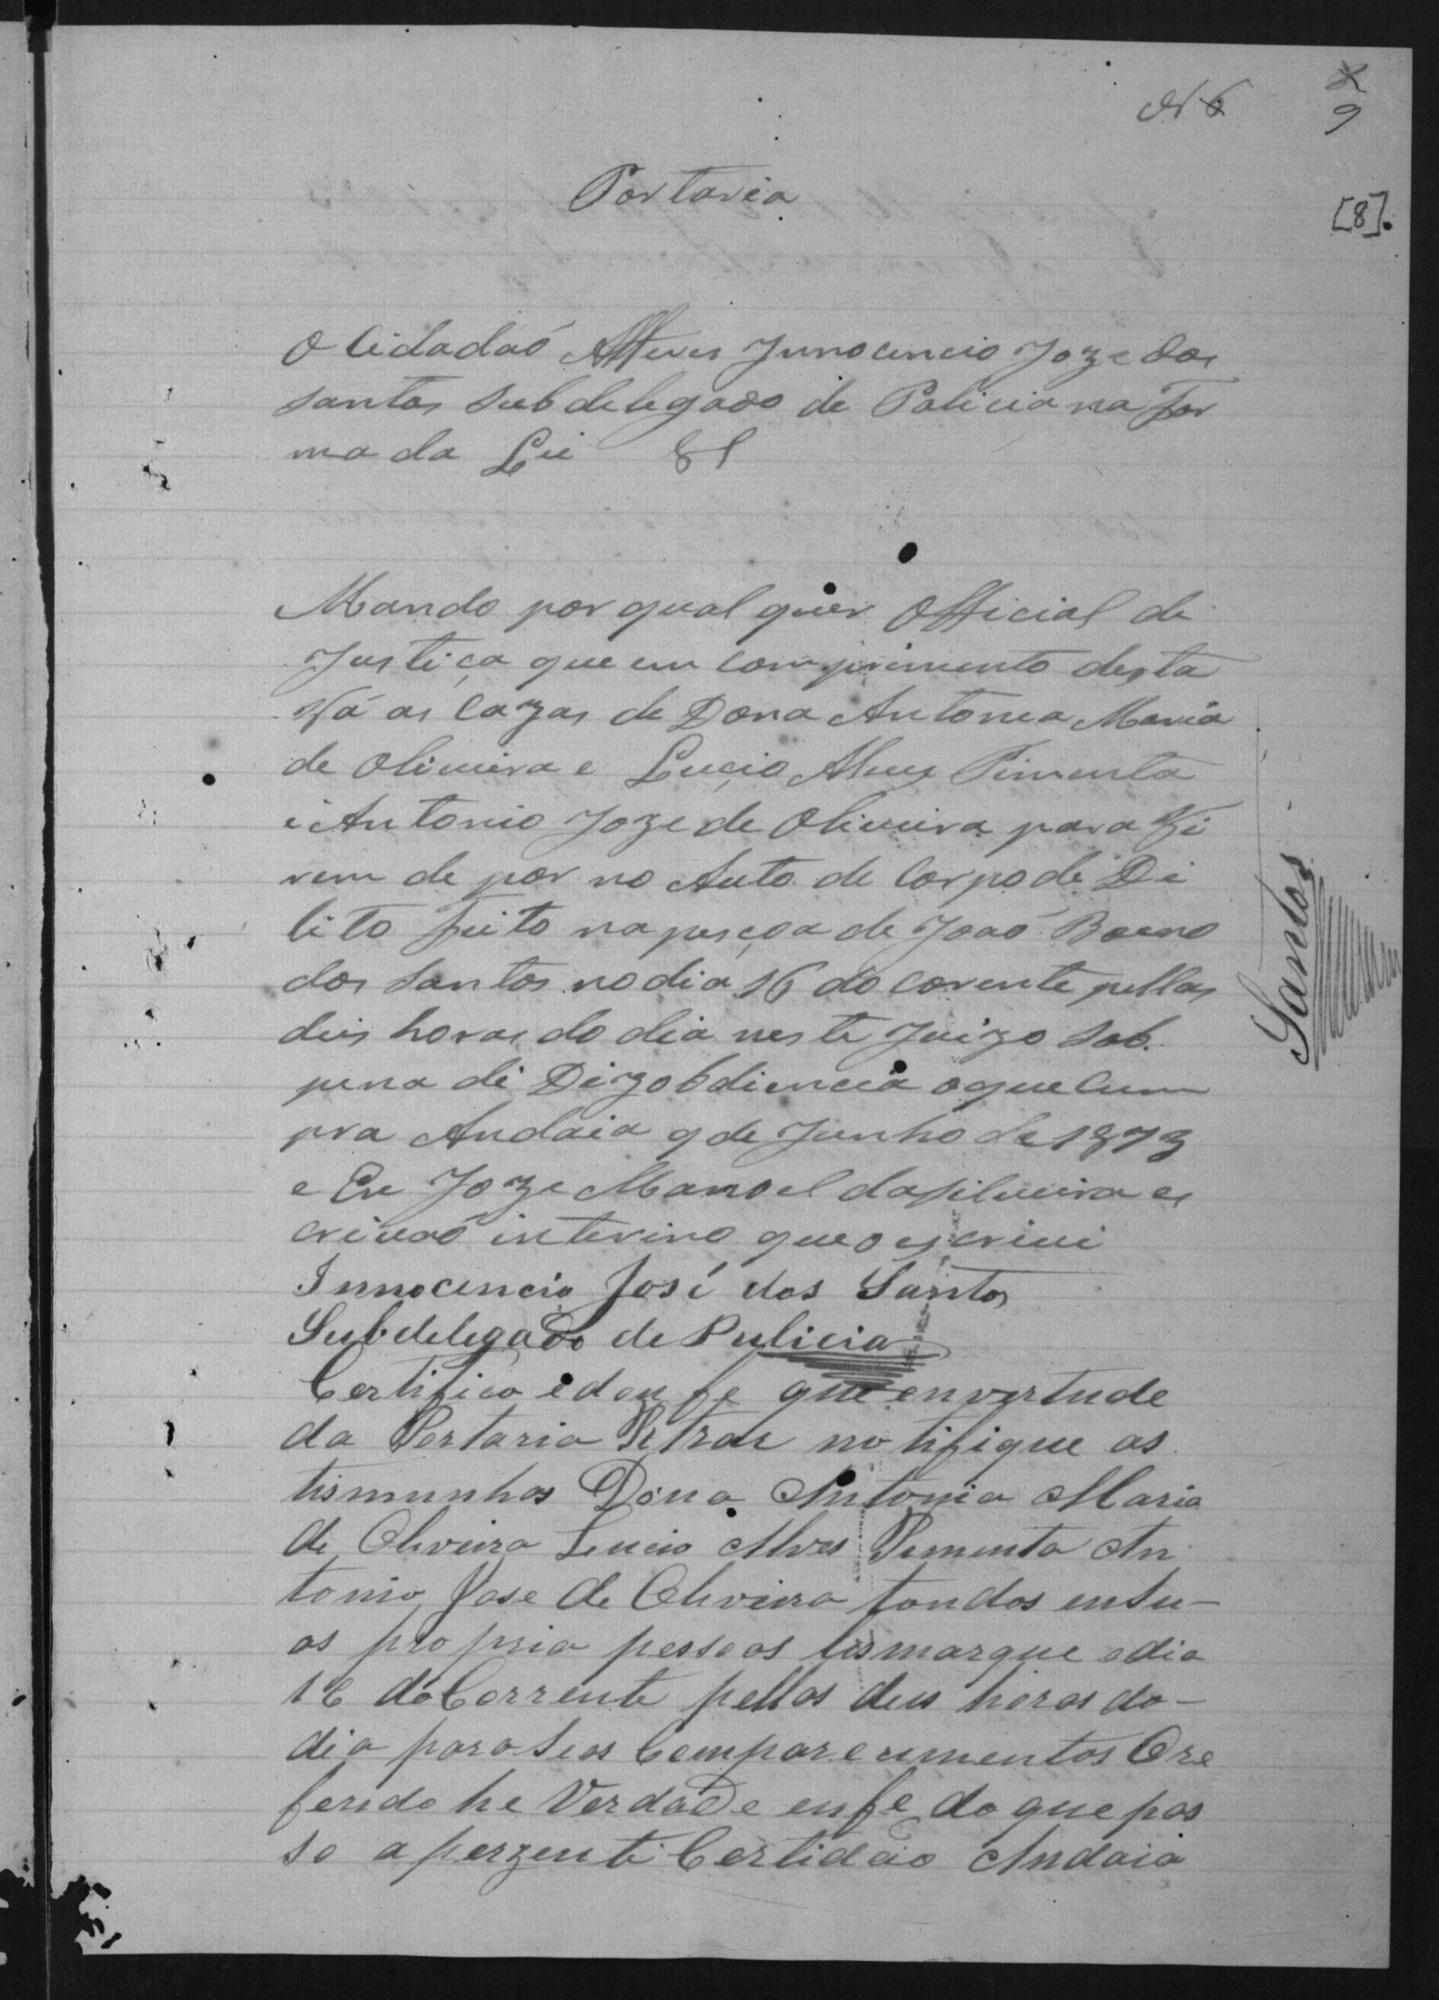 Nº 6
9
[8].
Portaria
O Cidadaó Alferes Innocencio Joze dos
santos subdelegado de Policia na for
ma da Lei &
Mando por qual quer Official de
Justiça que em comprimento desta
Vá as cazas de Dona Antonia Maria
de Oliveira e Lucio Alves Pimenta
e Antonio Joze de Oliveira para Vi
rem de por no Auto de Corpo de De
lito feito na pesçoa de Joaó Boeno
dos santos no dia 16 do corente pellas
deis horas do dia neste Juizo sob.
pena de Dizobdiencia o que Cum
pra Andaia 9 de Junho de 1873
e Eu Joze Manoel da silveira es
crivaó interino que o escrivi
Innocencio José dos Santos
Subdelegado de Pulicia
Certifico e dou fe que en vertude
da Portaria Retrac notifique as
tismunhas Dona Antonia Maria
de Oliveira Lucio Alves Pementa An
tonio Jose de Oliveira tondos en su-
as propria pessoas lismarque o dia
16 do Corrente pellas deis horas do-
dia para seos Comparecimentos O re
ferido he Verdade en fe do que pas
so a perzente Certidão Andaia
Santos